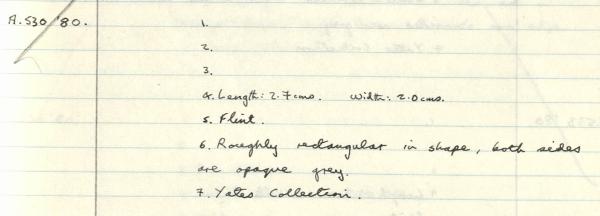 A.530 '80.
1.
2.
3.
4. Length: 2.7cms. Width: 2.0cms.
5. Flint.
6. Roughly rectangular in shape, both sides
are opaque grey.
7. Yates Collection.